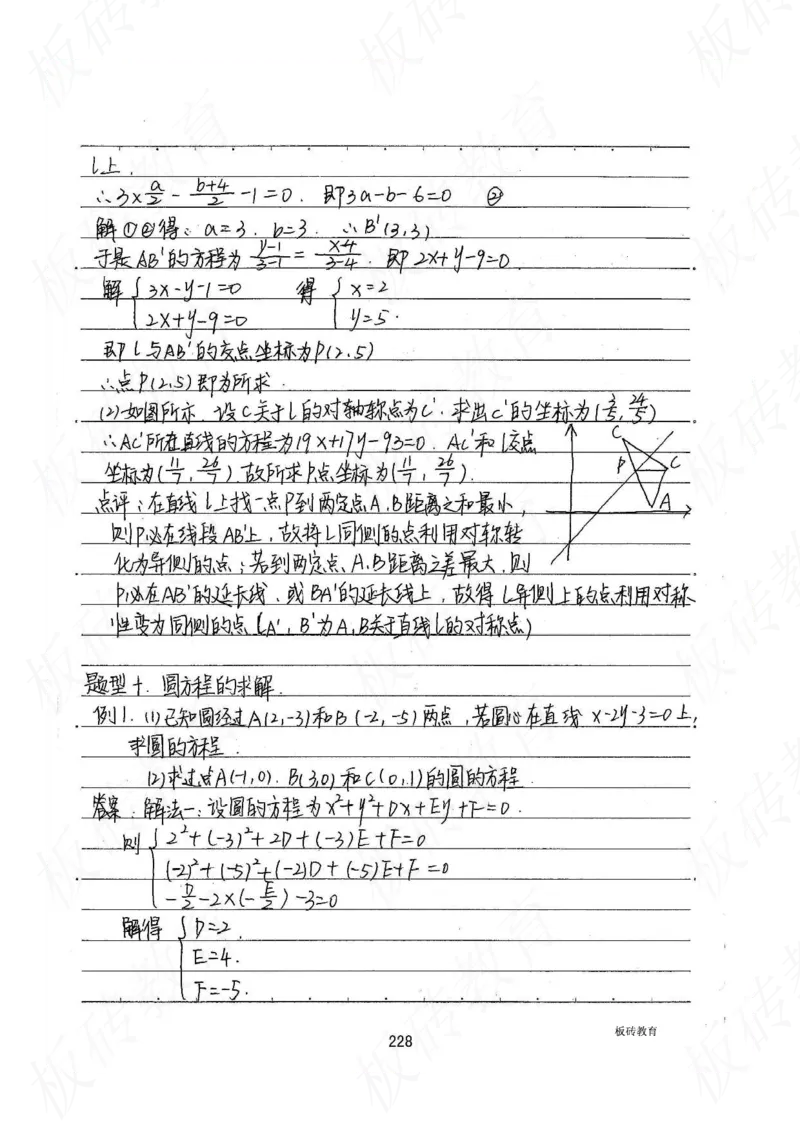 l上.
∴3×a/2 - (b+4)/2 -1=0. 即3a-b-6=0 ②
解①②得: a=3. b=3. ∴B'(3,3)
于是AB'的方程为 (y-1)/(3-1) = (x-4)/(3-4). 即 2x+y-9=0
解{3x-y-1=0 得{x=2
2x+y-9=0 y=5.
即l与AB'的交点坐标为P(2.5)
∴点P(2.5)即为所求.
(2)如图所示.设C关于l的对轴称点为C'.求出C'的坐标为(3/5, 24/5)
∴AC'所在直线的方程为19x+17y-93=0. AC'和l交点
坐标为(11/7, 26/7).故所求P点坐标为(11/7, 26/7).
C' P C A
点评:在直线l上找一点P到两定点A.B距离之和最小,
则P必在线段AB'上,故将l同侧的点利用对称转
化为异侧的点;若到两定点、A.B距离之差最大.则
P必在AB'的延长线.或BA'的延长线上,故得l异侧上的点利用对称
性变为同侧的点(A', B'为A,B关于直线l的对称点)
题型十.圆方程的求解.
例1. (1)已知圆经过A(2,-3)和B(-2,-5)两点,若圆心在直线 x-2y-3=0上,
求圆的方程.
(2)求过点A(-1,0). B(3,0)和C(0,1)的圆的方程.
答案:解法一:设圆的方程为x²+y²+Dx+Ey+F=0.
则{2²+(-3)²+2D+(-3)E+F=0
(-2)²+(-5)²+(-2)D+(-5)E+F=0
-D/2-2×(-E/2)-3=0
解得{D=2.
E=4.
F=-5.
板砖教育
228